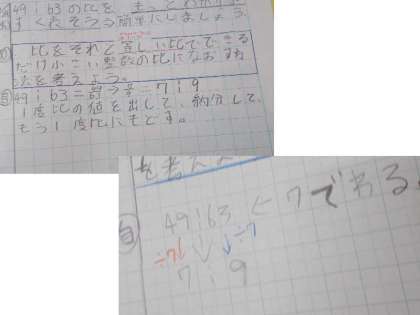 49:63の比を、もっとわかりや
すくたそう簡単にしましょう
比をそれと等しい比でできる
だけ小さい整数の比になおす方
法を考えよう。
自 49:63= 49/63 = 7/9 = 7:9
1度比の値を出して、約分して、
もう1度比にもどす。
を考えよ
49:63 ÷7でわる
自 ÷7 ÷7
7:9